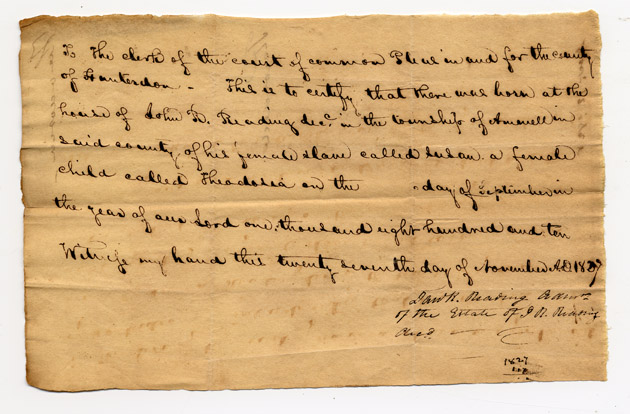 To The clerk of the court of common Pleas in and for the county
of Hunterdon - This is to certify that there was born at the
house of John R. Reading decd. in the township of Amwell in
said county, of his female slave called Susan a female
child called Theodosia on the day of September in
the year of our Lord one thousand eight hundred and ten
Witness my hand this twenty seventh day of November AD 1827
Reading Admr.
of the Estate of J R Reading
decd.
1827